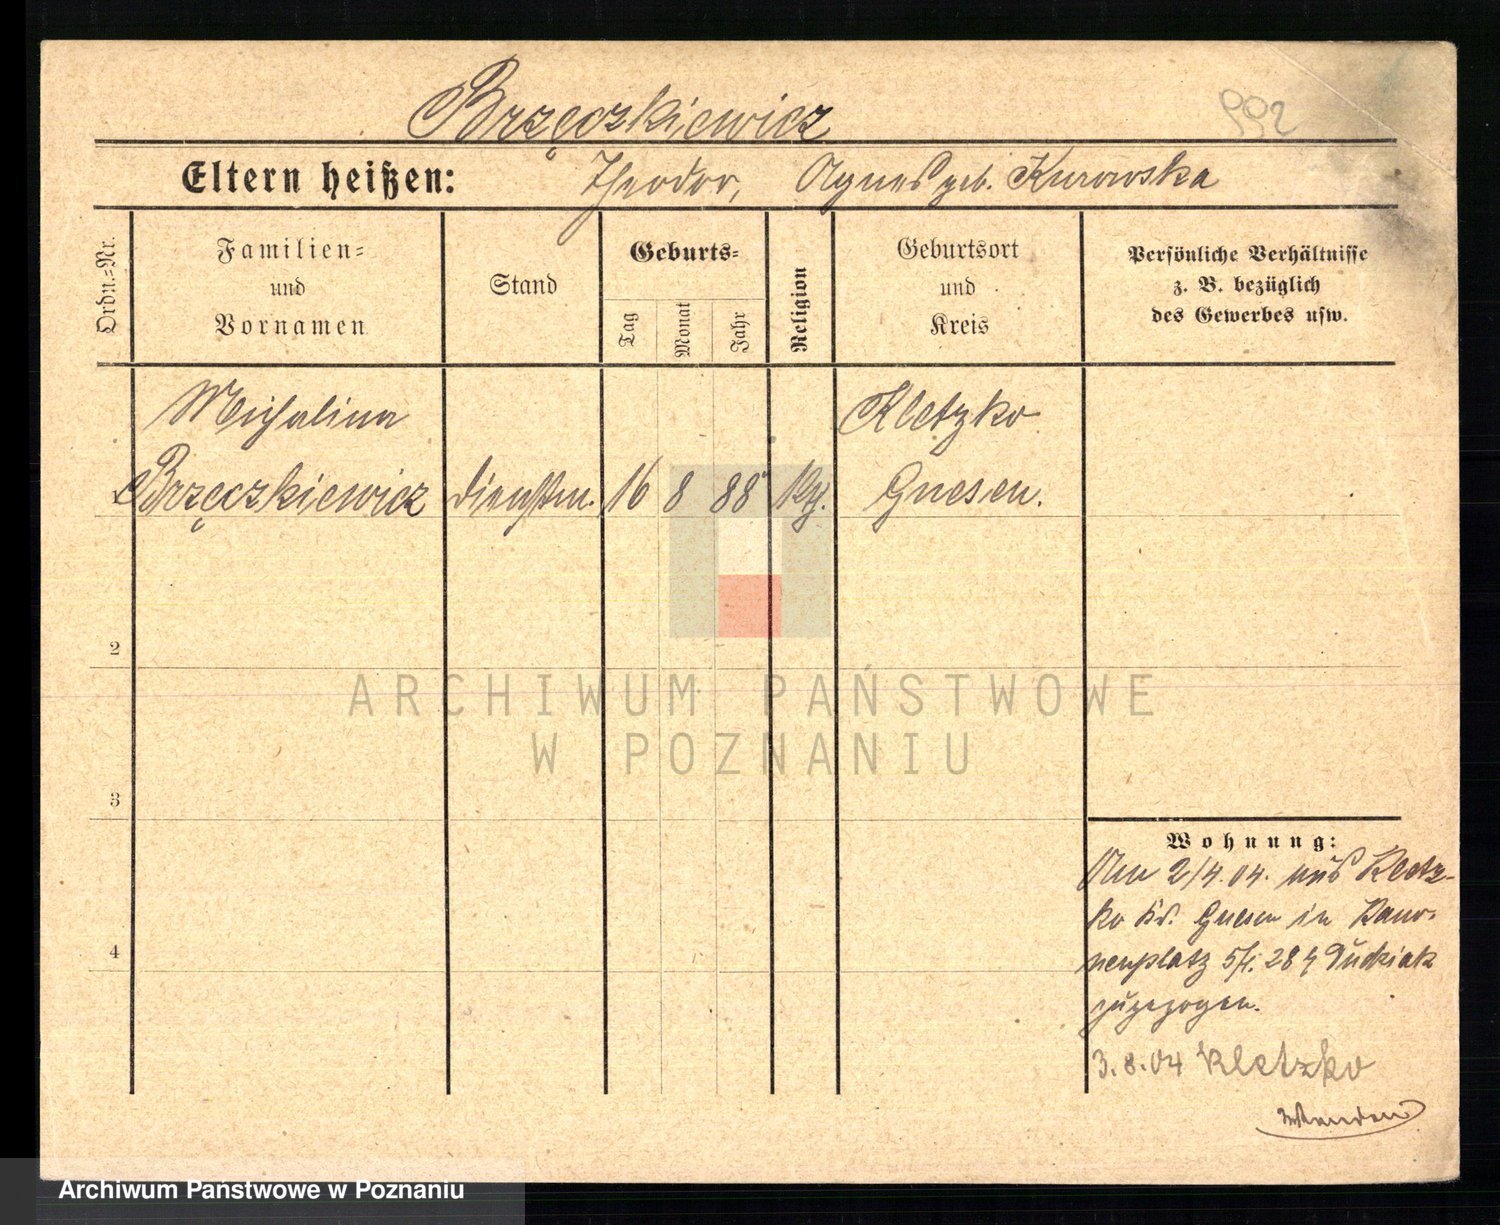 Brzęczkiewicz
992
Eltern heißen: Theodor, Agnes geb. Kurowska
Ordn.-Nr.
Familien- und Vornamen
Stand
Geburts-
Tag
Monat
Jahr
Religion
Geburtsort und Kreis
Persönliche Verhältnisse
z. B. bezüglich
des Gewerbes usw.
Michalina Kletzko
1 Brzęczkiewicz Dienstm. 16 8 88 Kg. Gnesen.
2
ARCHIWUM PAŃSTWOWE
W POZNANIU
3
Wohnung:
Am 2/4.04. aus Kletz-
ko Kr. Gnesen in Kano-
nenplatz 5/I. 28
zugezogen.
3.8.04 Kletzko
Wenden
4
Archiwum Państwowe w Poznaniu